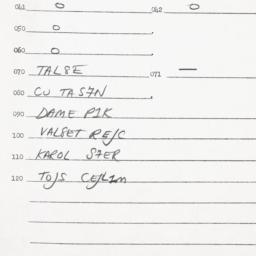 041 0 042 0
050 0
060 0
070 TALSE 071 —
080 CU TAS7N
090 DAME P1K
100 VALSET REJC
110 KAROL S7ER
120 TOJS CEJL1M